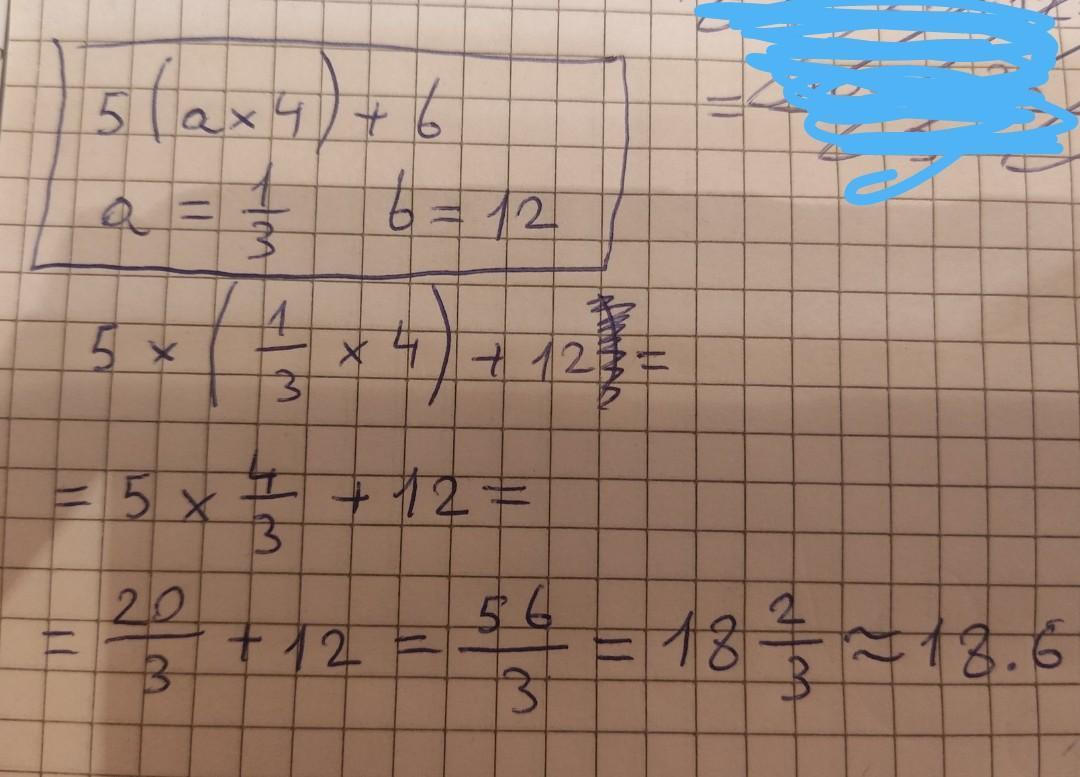 5(a×4)+b
a = 1/3 b = 12
5 × (1/3 × 4) + 12 =
= 5 × 4/3 + 12 =
= 20/3 + 12 = 56/3 = 18 2/3 ≈ 18.6